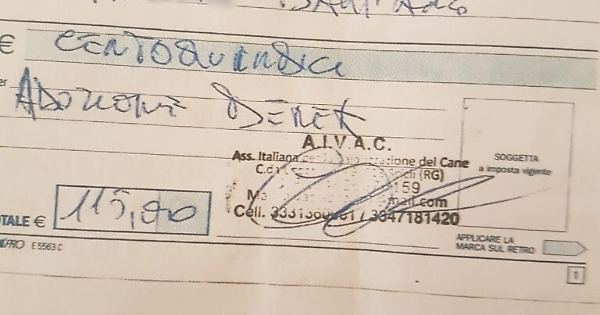 € CENTOQUINDICI
ADOZIONE DEREK
A.I.V.A.C.
Ass. Italiana zione del Cane
(RG)
159
mail.com
Cell. / 3347181420
SOGGETTA
a imposta vigente
TALE € 115,00
APPLICARE LA
MARCA SUL RETRO
PRO E 5563 C
1